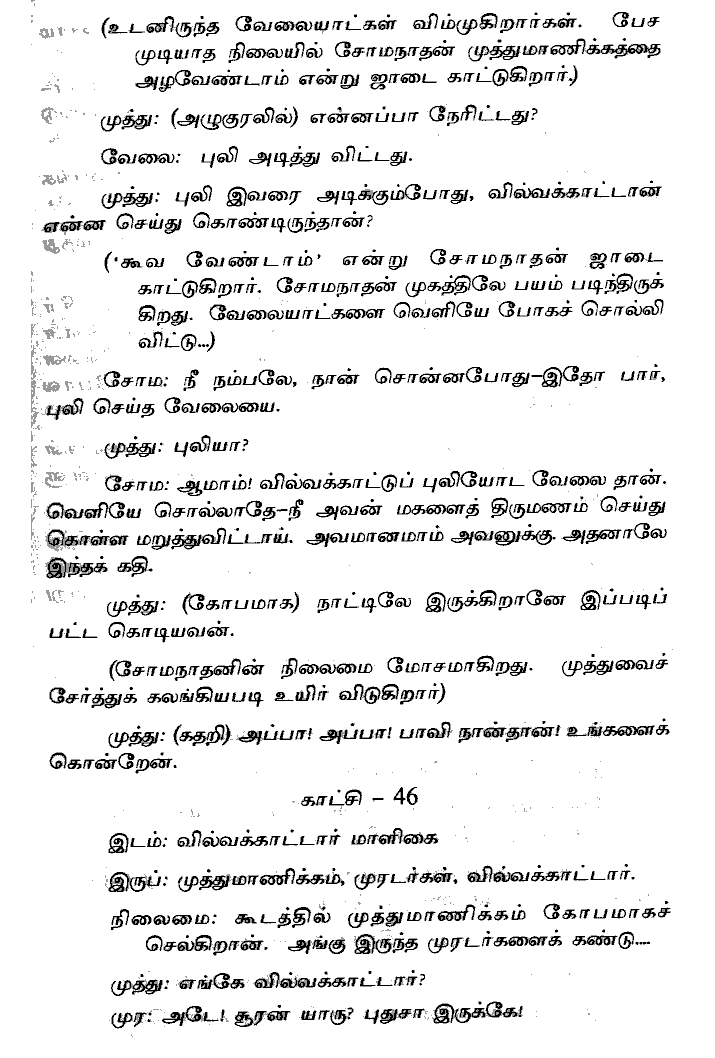 (உடனிருந்த வேலையாட்கள் விம்முகிறார்கள். பேச
முடியாத நிலையில் சோமநாதன் முத்துமாணிக்கத்தை
அழவேண்டாம் என்று ஜாடை காட்டுகிறார்.)
முத்து: (அழுகுரலில்) என்னப்பா நேரிட்டது?
வேலை: புலி அடித்து விட்டது.
முத்து: புலி இவரை அடிக்கும்போது, வில்வக்காட்டான்
என்ன செய்து கொண்டிருந்தான்?
('கூவ வேண்டாம்' என்று சோமநாதன் ஜாடை
காட்டுகிறார். சோமநாதன் முகத்திலே பயம் படிந்திருக்
கிறது. வேலையாட்களை வெளியே போகச் சொல்லி
விட்டு...)
சோம: நீ நம்பலே, நான் சொன்னபோது-இதோ பார்,
புலி செய்த வேலையை.
முத்து: புலியா?
சோம: ஆமாம்! வில்வக்காட்டுப் புலியோட வேலை தான்.
வெளியே சொல்லாதே-நீ அவன் மகளைத் திருமணம் செய்து
கொள்ள மறுத்துவிட்டாய். அவமானமாம் அவனுக்கு. அதனாலே
இந்தக் கதி.
முத்து: (கோபமாக) நாட்டிலே இருக்கிறானே இப்படிப்
பட்ட கொடியவன்.
(சோமநாதனின் நிலைமை மோசமாகிறது. முத்துவைச்
சேர்த்துக் கலங்கியபடி உயிர் விடுகிறார்)
முத்து: (கதறி) அப்பா! அப்பா! பாவி நான்தான்! உங்களைக்
கொன்றேன்.
காட்சி - 46
இடம்: வில்வக்காட்டார் மாளிகை
இருப்: முத்துமாணிக்கம், முரடர்கள், வில்வக்காட்டார்.
நிலைமை: கூடத்தில் முத்துமாணிக்கம் கோபமாகச்
செல்கிறான். அங்கு இருந்த முரடர்களைக் கண்டு....
முத்து: எங்கே வில்வக்காட்டார்?
முர: அடே! சூரன் யாரு? புதுசா இருக்கே!